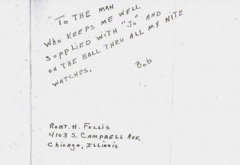 "To THE MAN
WHO KEEPS ME WELL
SUPPLIED WITH "Jo" AND
ON THE BALL THRU ALL MY NITE
WATCHES.
Bob
ROBT. H. FOLLIS
4103 S. CAMPBELL AVE,
Chicago, ILLINOIS